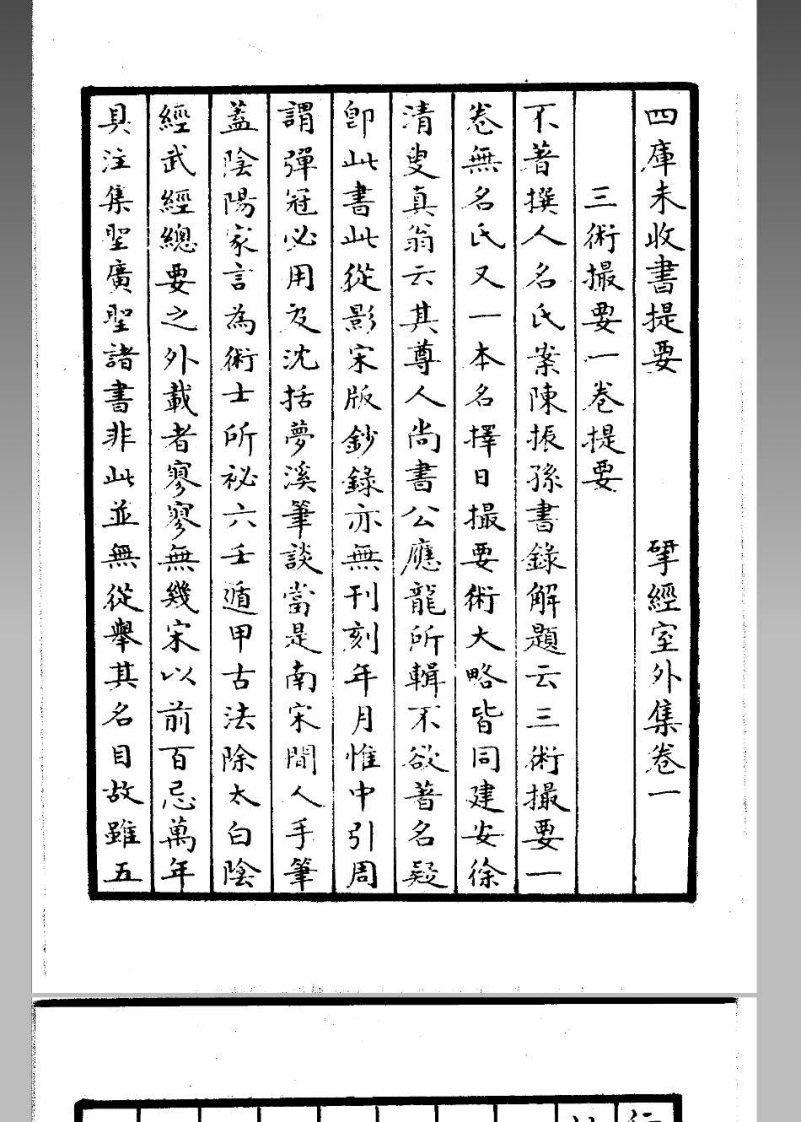 四庫未收書提要 揅經室外集卷一
三術撮要一卷提要
不著撰人名氏案陳振孫書錄解題云三術撮要一
卷無名氏又一本名擇日撮要術大略皆同建安徐
清叟真翁云其尊人尚書公應龍所輯不欲著名疑
卽此書此從影宋版鈔錄亦無刊刻年月惟中引周
謂彈冠必用及沈括夢溪筆談當是南宋間人手筆
蓋陰陽家言為術士所祕六壬遁甲古法除太白陰
經武經總要之外載者寥寥無幾宋以前百忌萬年
具注集聖廣聖諸書非此並無從舉其名目故雖五